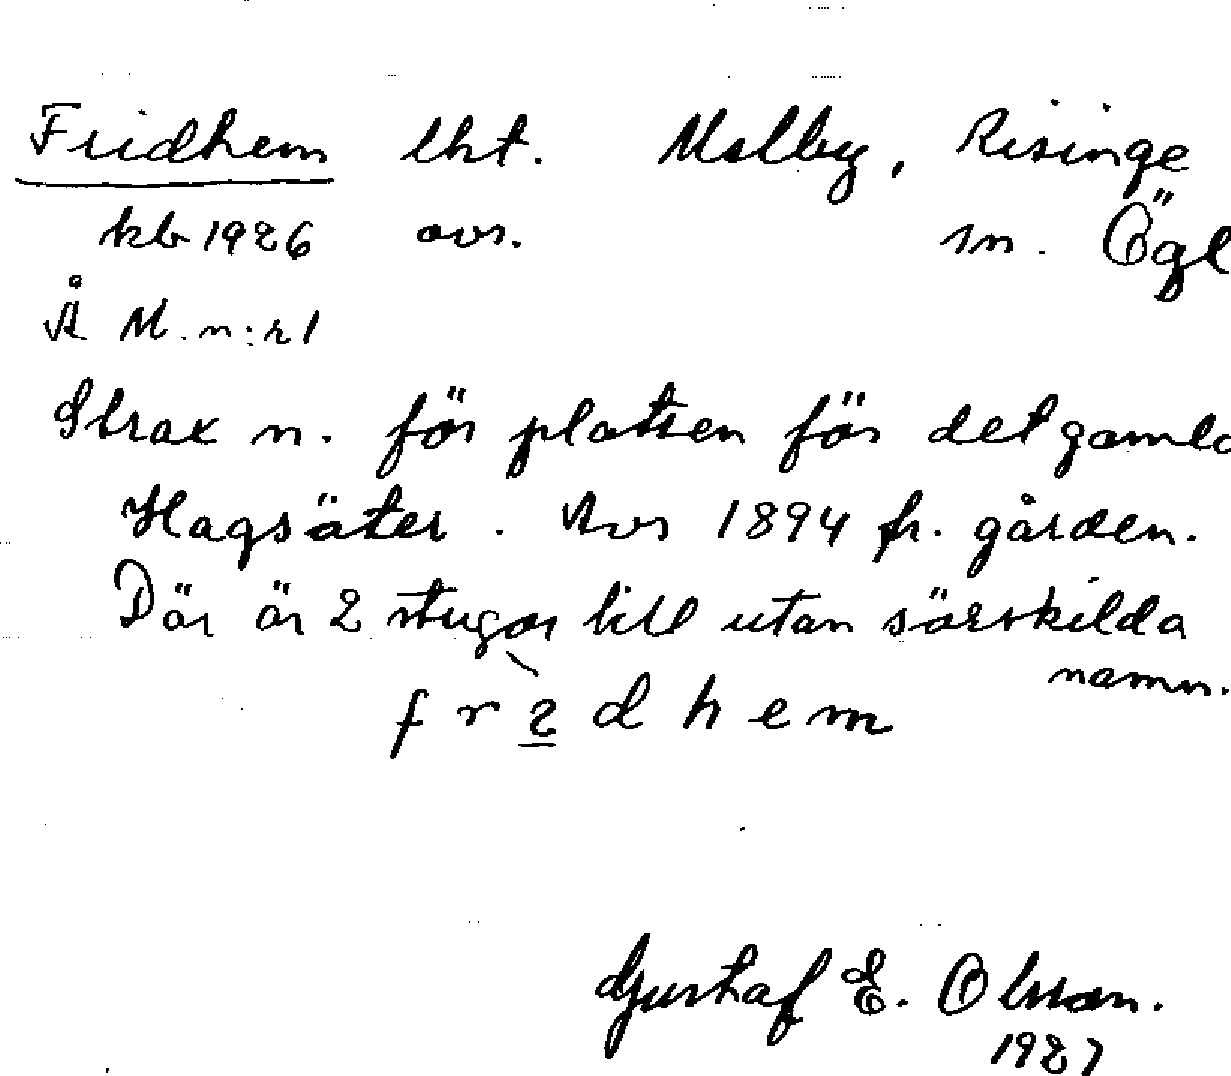 Fridhem lht. Malby, Risinge
kb 1926 avs. sn. Ögl
Å M. n:r 1
Strax n. för platsen för det gamla
Hagsäter. Avs 1894 fr. gården.
Där är 2 stugor till utan särskilda
namn.
f r 2 d h e m
Gustaf E. Olsson.
1927